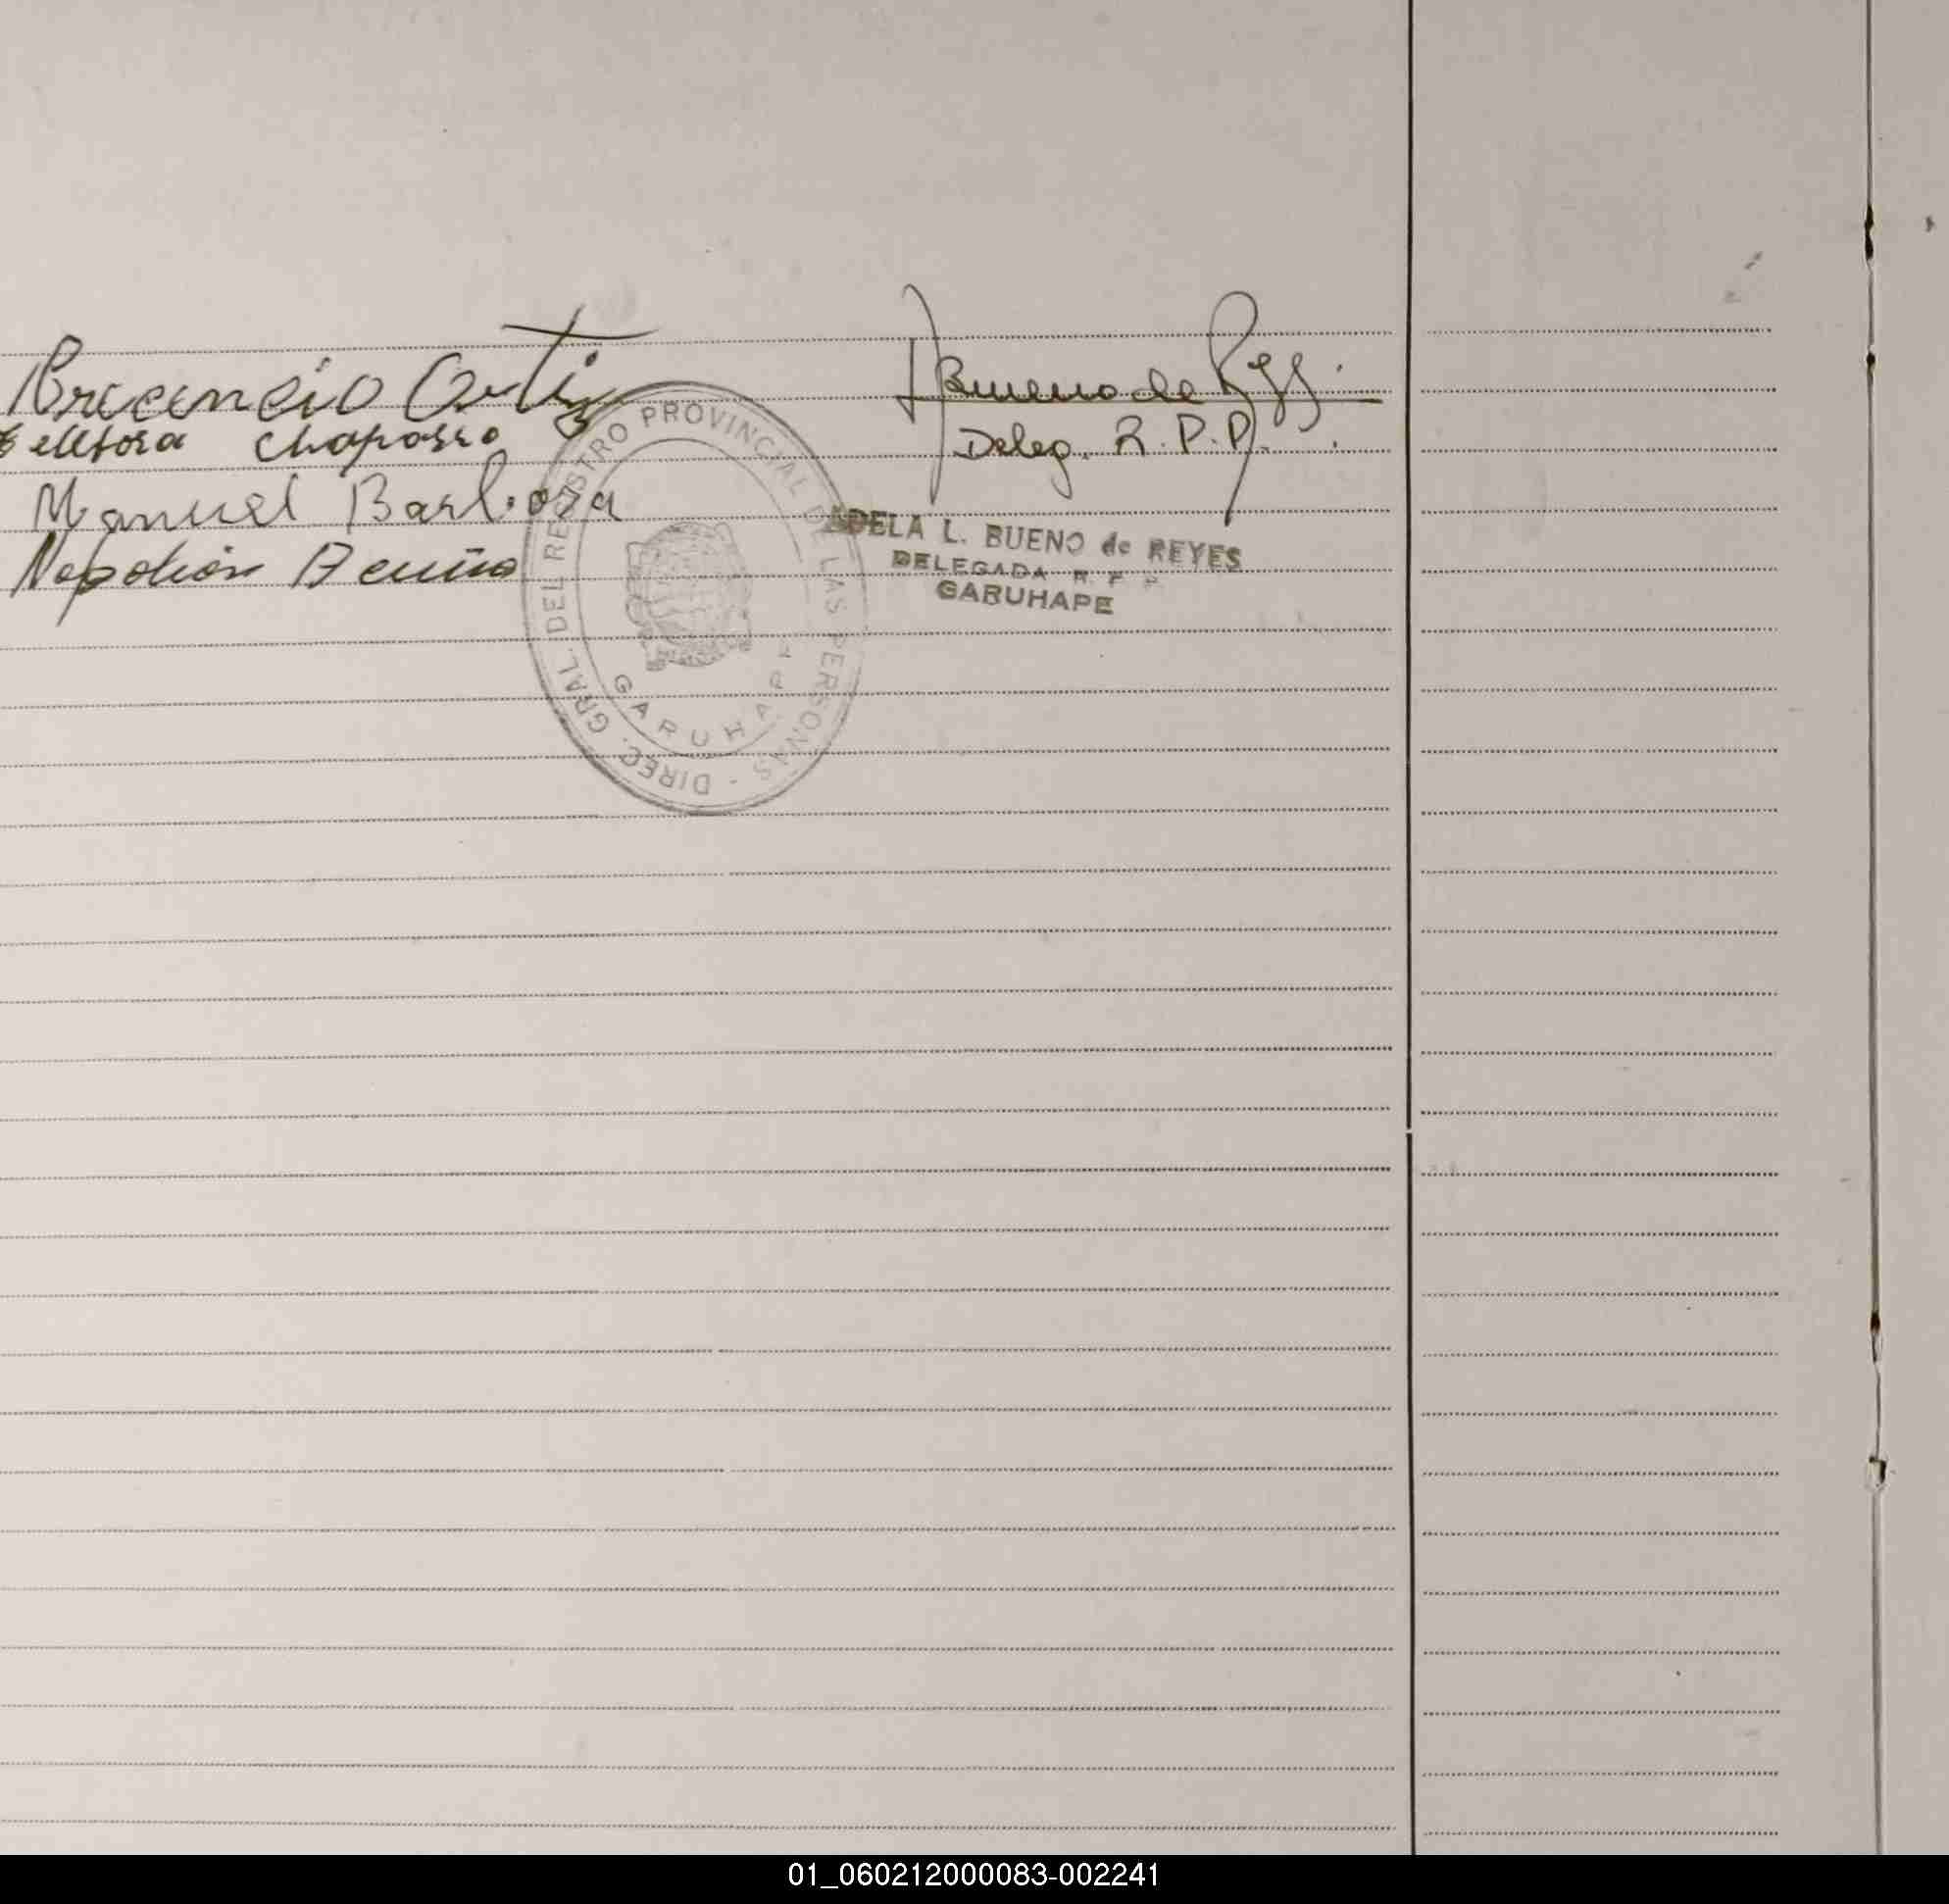 Ortiz
Chaparro
Manuel Barboza
Napoleón
ABueno de Reyes.
Deleg. R.P.P.
DIREC. GRAL. DEL REGISTRO PROVINCIAL DE LAS PERSONAS -
GARUHAPE
ADELA L. BUENO de REYES
DELEGADA R. P. P.
GARUHAPE
01_060212000083-002241